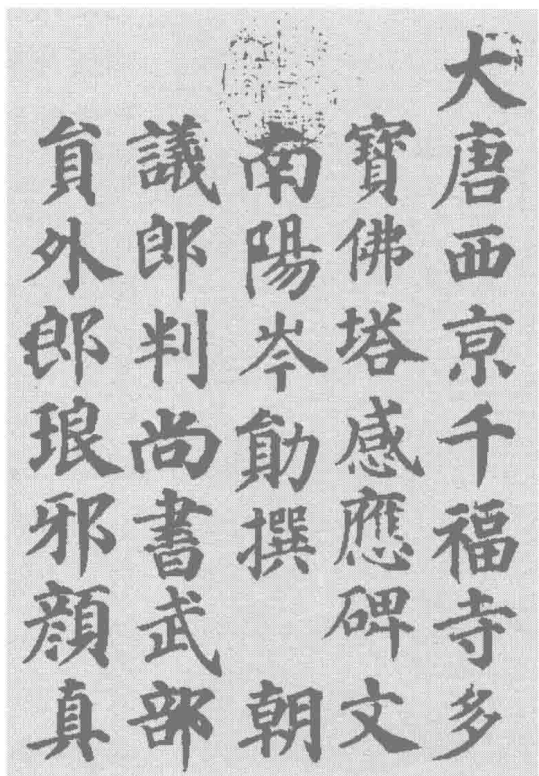 大唐西京千福寺多
寶佛塔感應碑文
南陽岑勛撰 朝
議郎判尚書武部
員外郎琅邪顔真